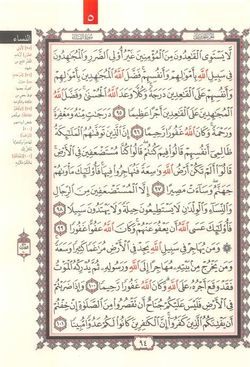 ٥
النساء
لَّا يَسْتَوِى الْقَٰعِدُونَ مِنَ الْمُؤْمِنِينَ غَيْرُ أُو۟لِى الضَّرَرِ وَالْمُجَٰهِدُونَ
فِى سَبِيلِ اللَّهِ بِأَمْوَٰلِهِمْ وَأَنفُسِهِمْ فَضَّلَ اللَّهُ الْمُجَٰهِدِينَ بِأَمْوَٰلِهِمْ
وَأَنفُسِهِمْ عَلَى الْقَٰعِدِينَ دَرَجَةً وَكُلًّا وَعَدَ اللَّهُ الْحُسْنَىٰ وَفَضَّلَ اللَّهُ
الْمُجَٰهِدِينَ عَلَى الْقَٰعِدِينَ أَجْرًا عَظِيمًا ٩٥ دَرَجَٰتٍ مِّنْهُ وَمَغْفِرَةً
وَرَحْمَةً وَكَانَ اللَّهُ غَفُورًا رَّحِيمًا ٩٦ إِنَّ الَّذِينَ تَوَفَّىٰهُمُ الْمَلَٰٓئِكَةُ
ظَالِمِىٓ أَنفُسِهِمْ قَالُوا۟ فِيمَ كُنتُمْ قَالُوا۟ كُنَّا مُسْتَضْعَفِينَ فِى الْأَرْضِ
قَالُوٓا۟ أَلَمْ تَكُنْ أَرْضُ اللَّهِ وَٰسِعَةً فَتُهَاجِرُوا۟ فِيهَا فَأُو۟لَٰٓئِكَ مَأْوَىٰهُمْ
جَهَنَّمُ وَسَآءَتْ مَصِيرًا ٩٧ إِلَّا الْمُسْتَضْعَفِينَ مِنَ الرِّجَالِ
وَالنِّسَآءِ وَالْوِلْدَٰنِ لَا يَسْتَطِيعُونَ حِيلَةً وَلَا يَهْتَدُونَ سَبِيلًا ٩٨
فَأُو۟لَٰٓئِكَ عَسَى اللَّهُ أَن يَعْفُوَ عَنْهُمْ وَكَانَ اللَّهُ عَفُوًّا غَفُورًا ٩٩
وَمَن يُهَاجِرْ فِى سَبِيلِ اللَّهِ يَجِدْ فِى الْأَرْضِ مُرَٰغَمًا كَثِيرًا وَسَعَةً
وَمَن يَخْرُجْ مِنۢ بَيْتِهِ مُهَاجِرًا إِلَى اللَّهِ وَرَسُولِهِ ثُمَّ يُدْرِكْهُ الْمَوْتُ
فَقَدْ وَقَعَ أَجْرُهُ عَلَى اللَّهِ وَكَانَ اللَّهُ غَفُورًا رَّحِيمًا ١٠٠ وَإِذَا ضَرَبْتُمْ
فِى الْأَرْضِ فَلَيْسَ عَلَيْكُمْ جُنَاحٌ أَن تَقْصُرُوا۟ مِنَ الصَّلَوٰةِ إِنْ خِفْتُمْ
أَن يَفْتِنَكُمُ الَّذِينَ كَفَرُوٓا۟ إِنَّ الْكَٰفِرِينَ كَانُوا۟ لَكُمْ عَدُوًّا مُّبِينًا ١٠١
٩٤